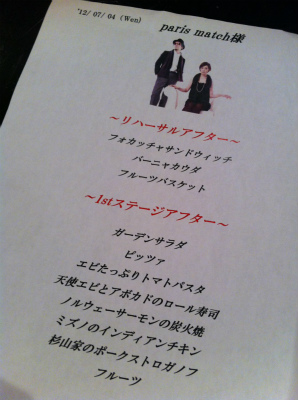 '12/ 07/ 04 (Wen)
paris match様
～リハーサルアフター～
フォカッチャサンドウィッチ
バーニャカウダ
フルーツバスケット
～1stステージアフター～
ガーデンサラダ
ピッツァ
エビたっぷりトマトパスタ
天使エビとアボカドのロール寿司
ノルウェーサーモンの炭火焼
ミズノのインディアンチキン
杉山家のポークストロガノフ
フルーツ